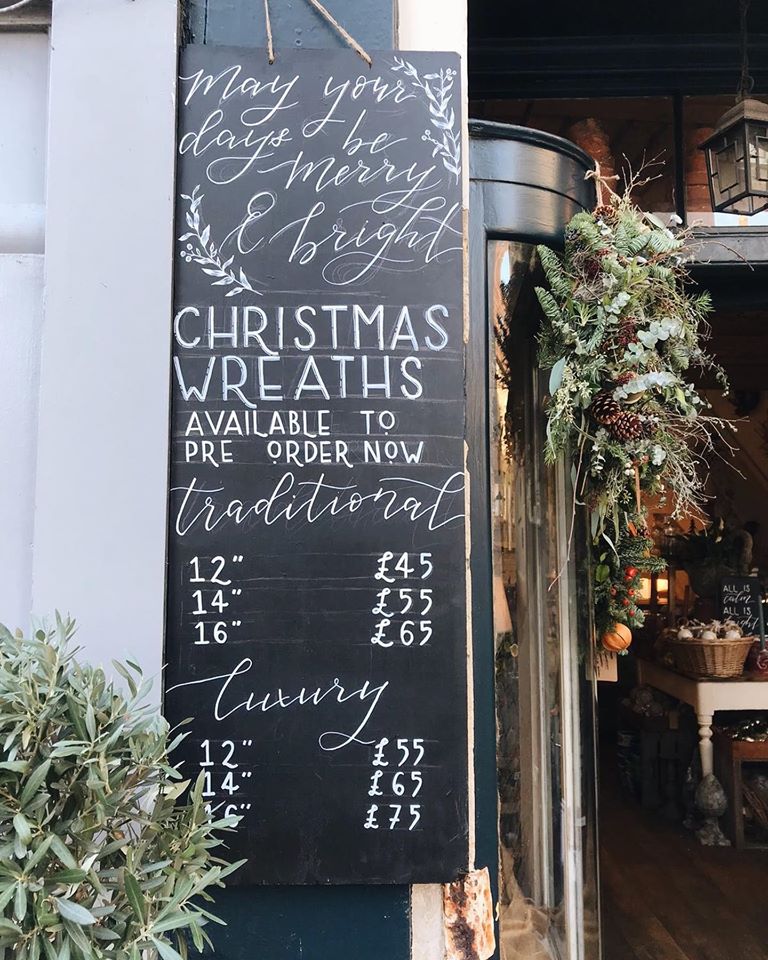 May your
days be
Merry
& bright
CHRISTMAS
WREATHS
AVAILABLE TO
PRE ORDER NOW
traditional
12" £45
14" £55
16" £65
luxury
12" £55
14" £65
16" £75
ALL IS
calm
ALL IS
bright